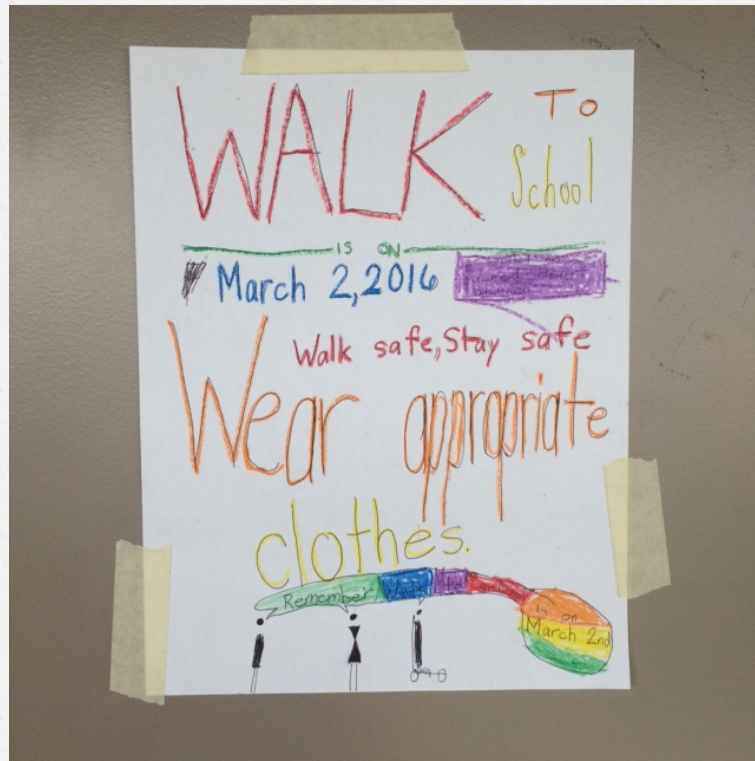 WALK To
School
IS ON
March 2,2016
Walk safe, Stay safe
Wear appropriate
clothes.
Remember Walk to
is on
March 2nd